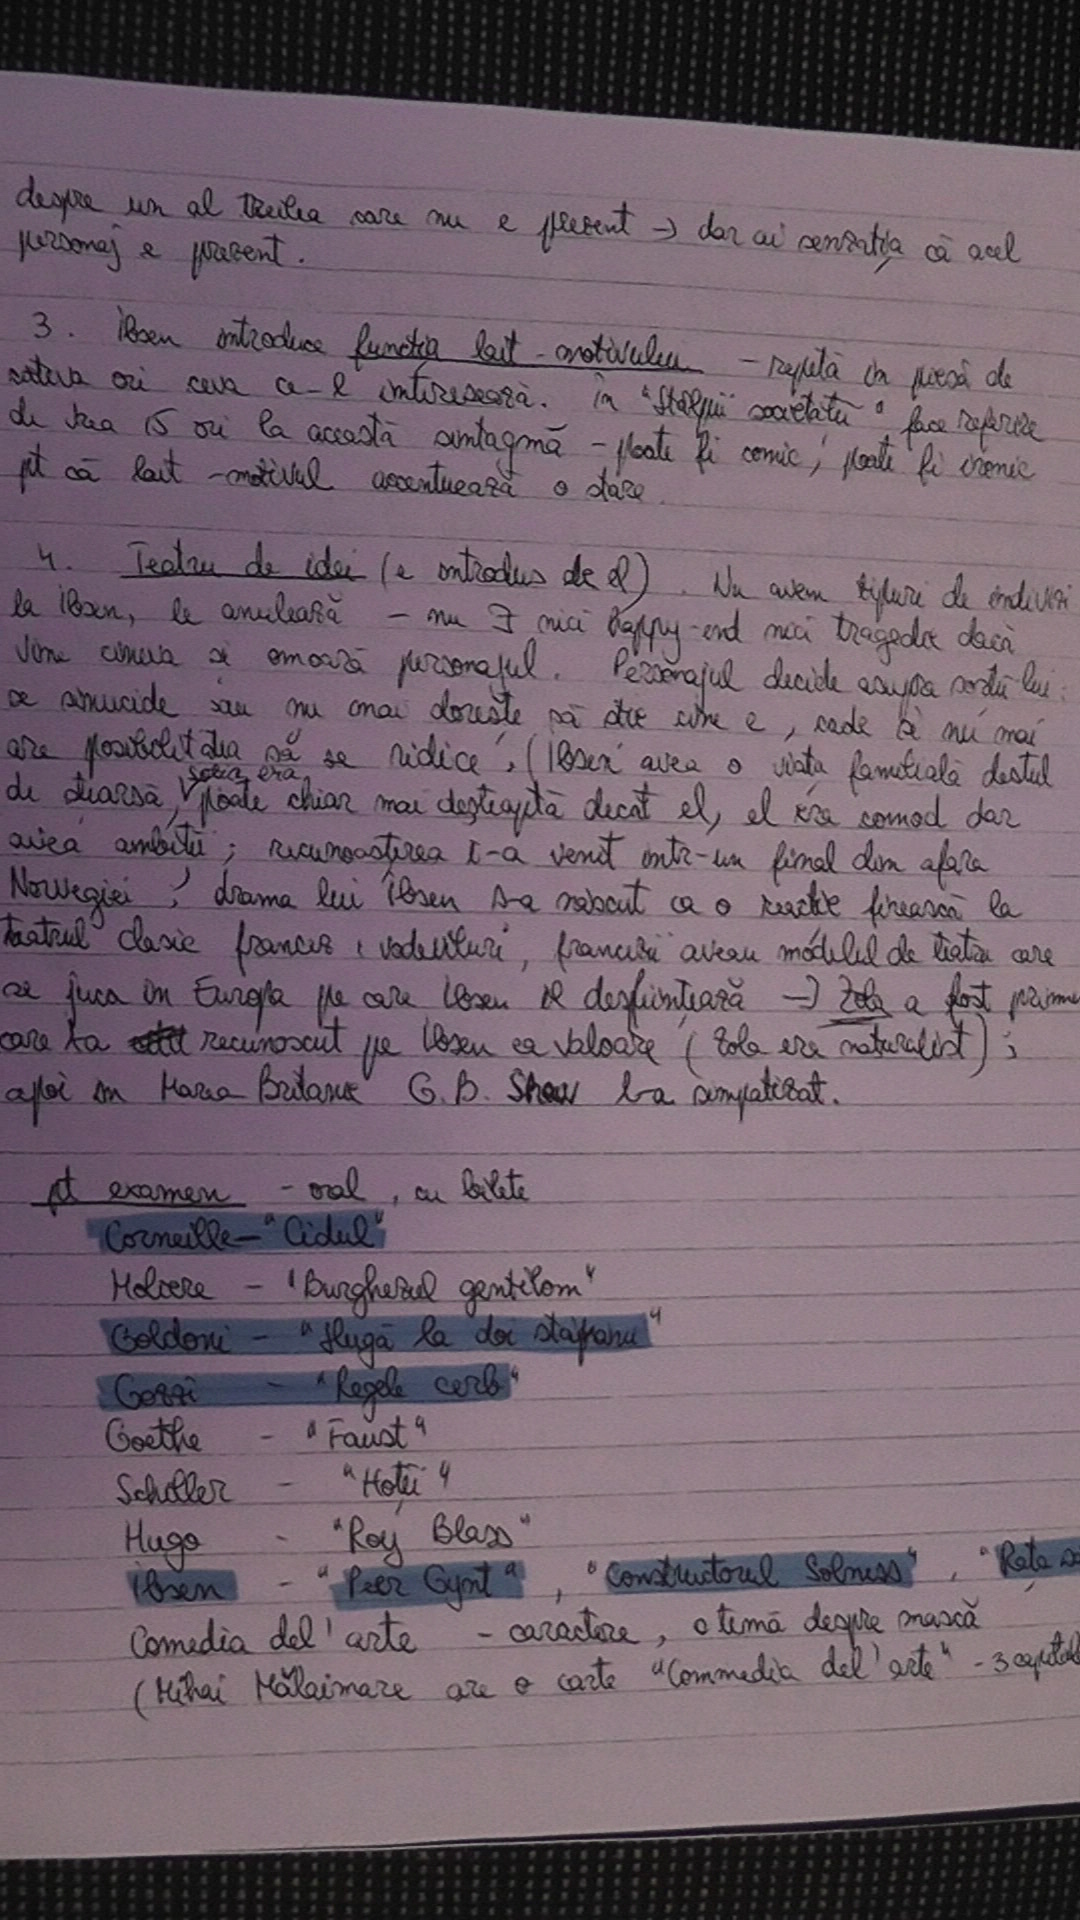 despre un al treilea care nu e prezent → dar ai senzația că acel
personaj e prezent.
3. Ibsen introduce funcția lait-motivului - repetă în piesă de
câteva ori ceva ce-l interesează. În "Stâlpii societății" face referire
de vreo 15 ori la această sintagmă - poate fi comic, poate fi ironic
pt că lait-motivul accentuează o stare.
4. Teatru de idei (e introdus de el). Nu avem tipluri de indivizi
la Ibsen, le anulează - nu ∃ nici happy-end nici tragedie dacă
vine cineva și omoară personajul. Personajul decide asupra sortii lui:
se sinucide sau nu mai dorește să știe cine e, cade și nu mai
are posibilitatea să se ridice. (Ibsen avea o viața familială destul
de ștearsă, soția era poate chiar mai deșteaptă decât el, el era comod dar
avea ambiții; recunoașterea i-a venit într-un final din afara
Norvegiei; drama lui Ibsen s-a născut ca o reacție firească la
teatrul clasic francez, vodeviluri, francezii aveau modelul de teatru care
se juca în Europa pe care Ibsen îl desființează → Zola a fost primu
care l-a recunoscut pe Ibsen ca valoare (Zola era naturalist);
apoi în Marea Britanie G.B. Shaw l-a simpatizat.
pt examen - oral, cu bilete
Corneille - "Cidul"
Moliere - "Burghezul gentilom"
Goldoni - "Slugă la doi stăpani"
Gozzi - "Regele cerb"
Goethe - "Faust"
Schiller - "Hoții"
Hugo - "Roy Blass"
Ibsen - "Peer Gynt", "Constructorul Solness", "Rața s
Comedia del'arte - caractere, o temă despre mască
(Mihai Mălaimare are o carte "Commedia del'arte" - 3 capitol